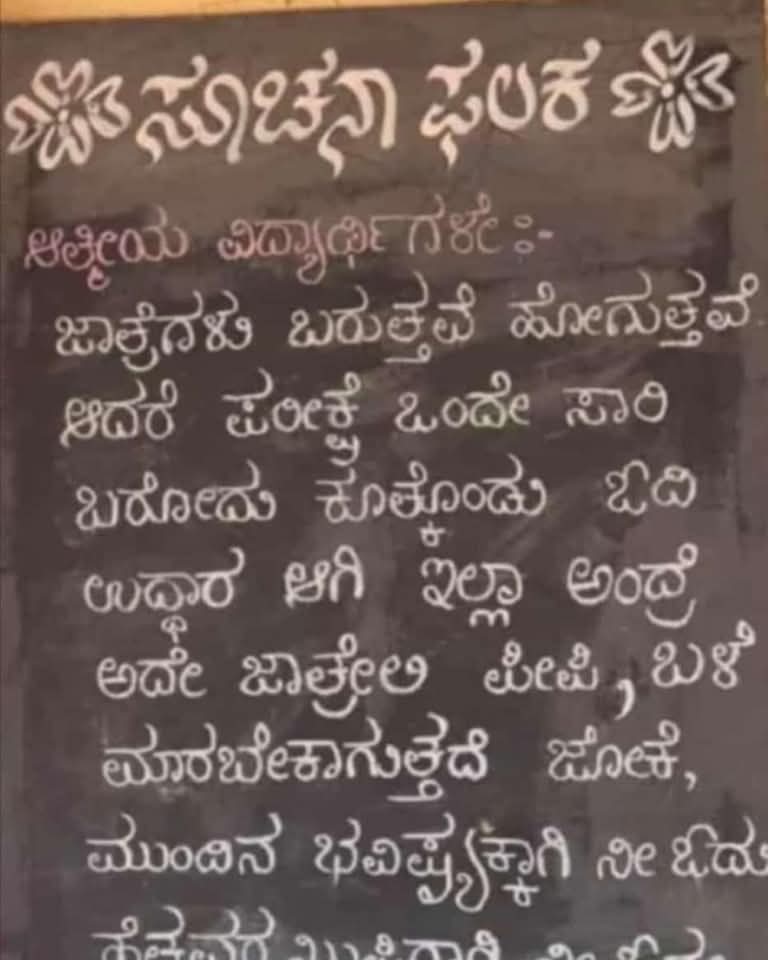 ಸೂಚನಾ ಫಲಕ
ಆತ್ಮೀಯ ವಿದ್ಯಾರ್ಥಿಗಳೇ :-
ಜಾತ್ರೆಗಳು ಬರುತ್ತವೆ ಹೋಗುತ್ತವೆ.
ಆದರೆ ಪರೀಕ್ಷೆ ಒಂದೇ ಸಾರಿ
ಬರೋದು ಕೂತ್ಕೊಂಡು ಓದಿ
ಉದ್ಧಾರ ಆಗಿ ಇಲ್ಲಾ ಅಂದ್ರೆ
ಅದೇ ಜಾತ್ರೇಲಿ ಪೀಪಿ, ಬಳೆ
ಮಾರಬೇಕಾಗುತ್ತದೆ ಜೋಕೆ,
ಮುಂದಿನ ಭವಿಷ್ಯಕ್ಕಾಗಿ ನೀ ಓದು